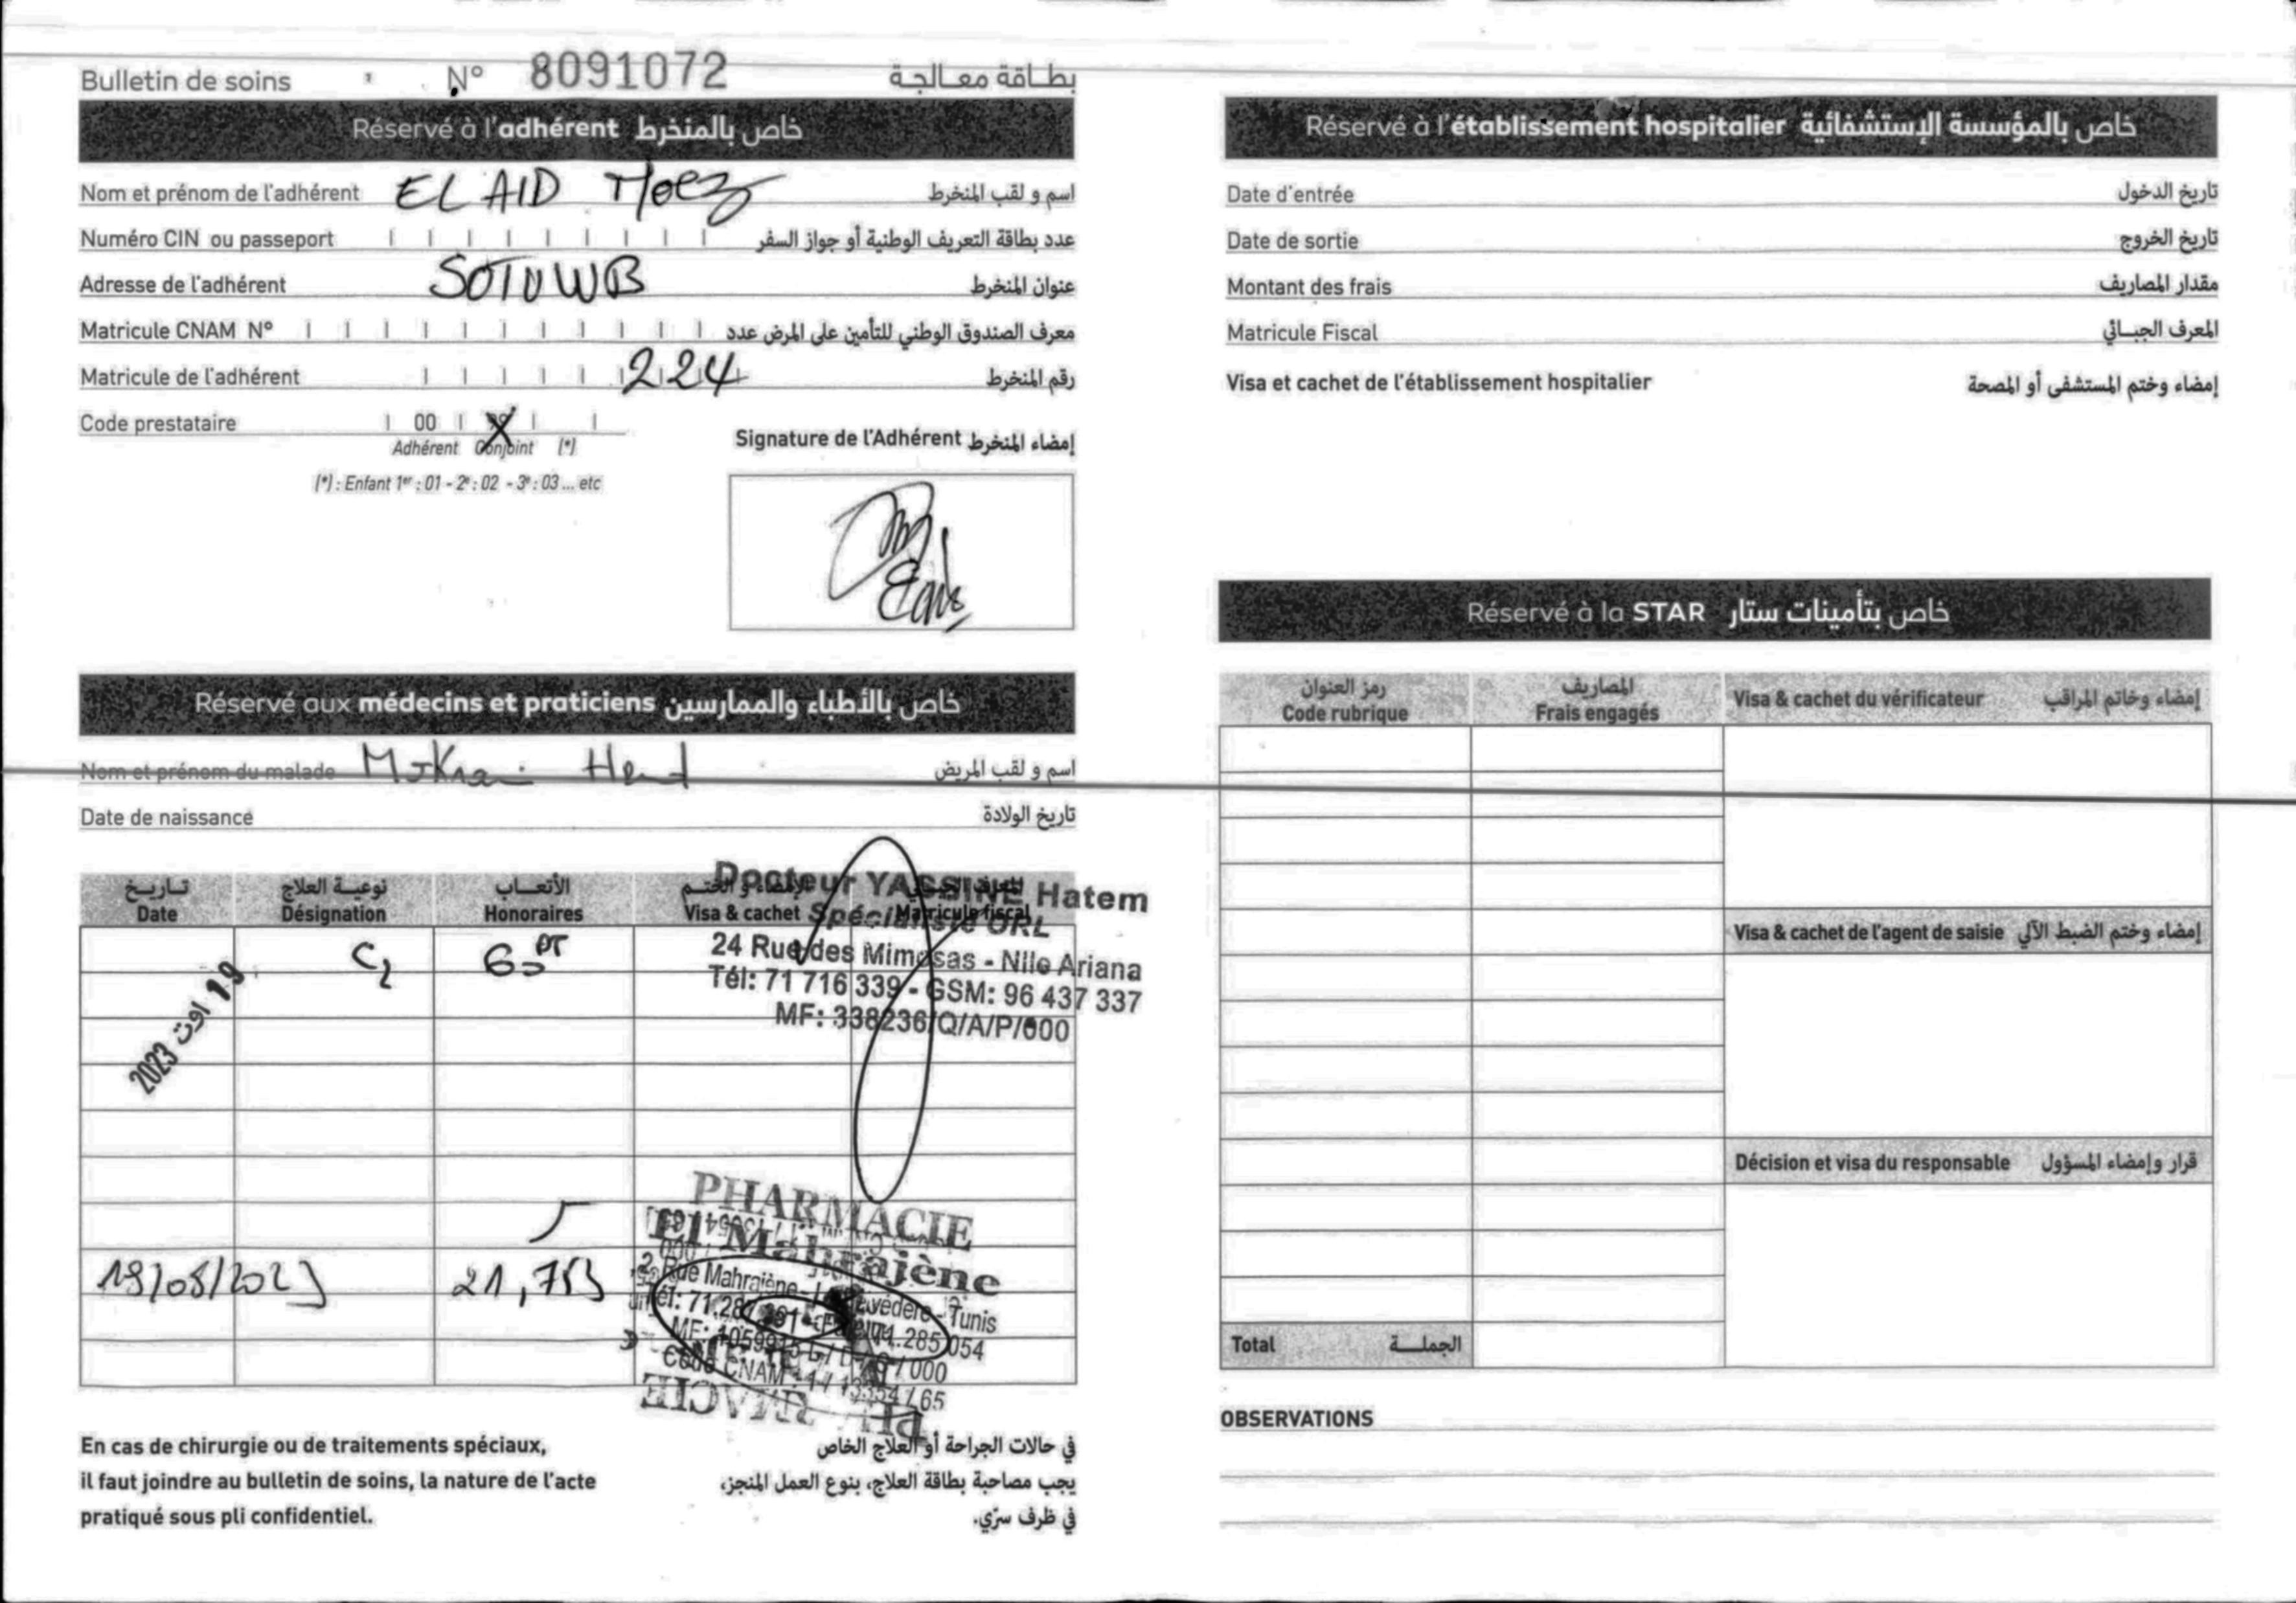 Bulletin de soins N° 8091072 بطاقة معالجة
Réservé à l'adhérent خاص بالمنخرط
Nom et prénom de l'adhérent EL AID Moez اسم و لقب المنخرط
Numéro CIN ou passeport عدد بطاقة التعريف الوطنية أو جواز السفر
Adresse de l'adhérent SOTUWB عنوان المنخرط
Matricule CNAM N° معرف الصندوق الوطني للتأمين على المرض عدد
Matricule de l'adhérent 224 رقم المنخرط
Code prestataire 00
Adhérent Conjoint (*)
(*) : Enfant 1er : 01 - 2e : 02 - 3e : 03 ... etc
Signature de l'Adhérent إمضاء المنخرط
Réservé aux médecins et praticiens خاص بالأطباء والممارسين
Nom et prénom du malade Mokrani Hend اسم و لقب المريض
Date de naissance تاريخ الولادة
تاريخ نوعية العلاج الأتعاب الإمضاء و الختم المعرف الجبائي
Date Désignation Honoraires Visa & cachet Matricule fiscal
Docteur YASSINE Hatem
Spécialiste ORL
24 Rue des Mimosas - Nile Ariana
Tél: 71 716 339 - GSM: 96 437 337
MF: 338236/Q/A/P/000
19 اوت 2023 C2
PHARMACIE
El Mahrajène
2 Rue Mahrajène - Tunis
19/08/2023 21,753
Code CNAM
En cas de chirurgie ou de traitements spéciaux,
il faut joindre au bulletin de soins, la nature de l'acte
pratiqué sous pli confidentiel.
في حالات الجراحة أو العلاج الخاص
يجب مصاحبة بطاقة العلاج، بنوع العمل المنجز،
في ظرف سرّي.
Réservé à l'établissement hospitalier خاص بالمؤسسة الإستشفائية
Date d'entrée تاريخ الدخول
Date de sortie تاريخ الخروج
Montant des frais مقدار المصاريف
Matricule Fiscal المعرف الجبائي
Visa et cachet de l'établissement hospitalier إمضاء وختم المستشفى أو المصحة
Réservé à la STAR خاص بتأمينات ستار
رمز العنوان المصاريف
Code rubrique Frais engagés Visa & cachet du vérificateur إمضاء وخاتم المراقب
Visa & cachet de l'agent de saisie إمضاء وختم الضبط الآلي
Décision et visa du responsable قرار وإمضاء المسؤول
Total الجملة
OBSERVATIONS